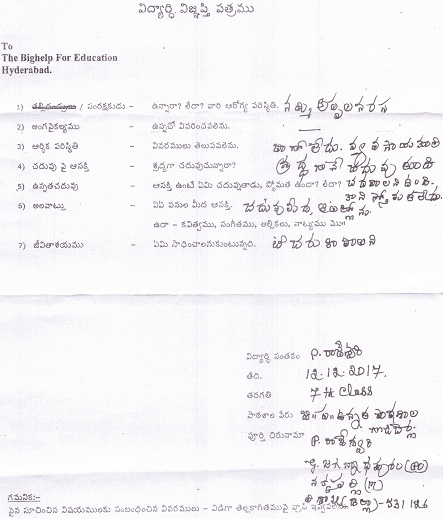 విద్యార్థి విజ్ఞప్తి పత్రము
To
The Bighelp For Education
Hyderabad.
1) తల్లిదండ్రులు / సంరక్షకుడు - ఉన్నారా? లేదా? వారి ఆరోగ్య పరిస్థితి.
2) అంగవైకల్యము - ఉన్నచో వివరించవలెను.
3) ఆర్థిక పరిస్థితి - వివరములు తెలుపవలెను. బాగా లేదు. వ్యవసాయ కూలి
4) చదువు పై ఆసక్తి - శ్రద్ధగా చదువుచున్నారా? శ్రద్ధగానే చదువుతుంది
5) ఉన్నతచదువు - ఆసక్తి ఉంటే ఏమి చదువుతాడు, స్తోమత ఉందా? లేదా? చదవాలని ఉంది.
కాని స్తోమత లేదు.
6) అలవాట్లు - ఏఏ పనుల మీద ఆసక్తి. చదువు మీద
ఉదా - కవిత్వము, సంగీతము, అల్లికలు, నాట్యము మొ॥
7) జీవితాశయము - ఏమి సాధించాలనుకుంటున్నది. టీచరు కావాలని
విద్యార్థి సంతకం P. రాజేశ్వరి
తేది. 12.12.2017.
తరగతి 7th class
పాఠశాల పేరు ఉన్నత పాఠశాల
పూర్తి చిరునామా P. రాజేశ్వరి
(జిల్లా) - 531126
గమనిక:-
పైన సూచించిన విషయములకు సంబంధించిన వివరములు - విడిగా తెల్లకాగితముపై వ్రాసి ఇవ్వవలెను.